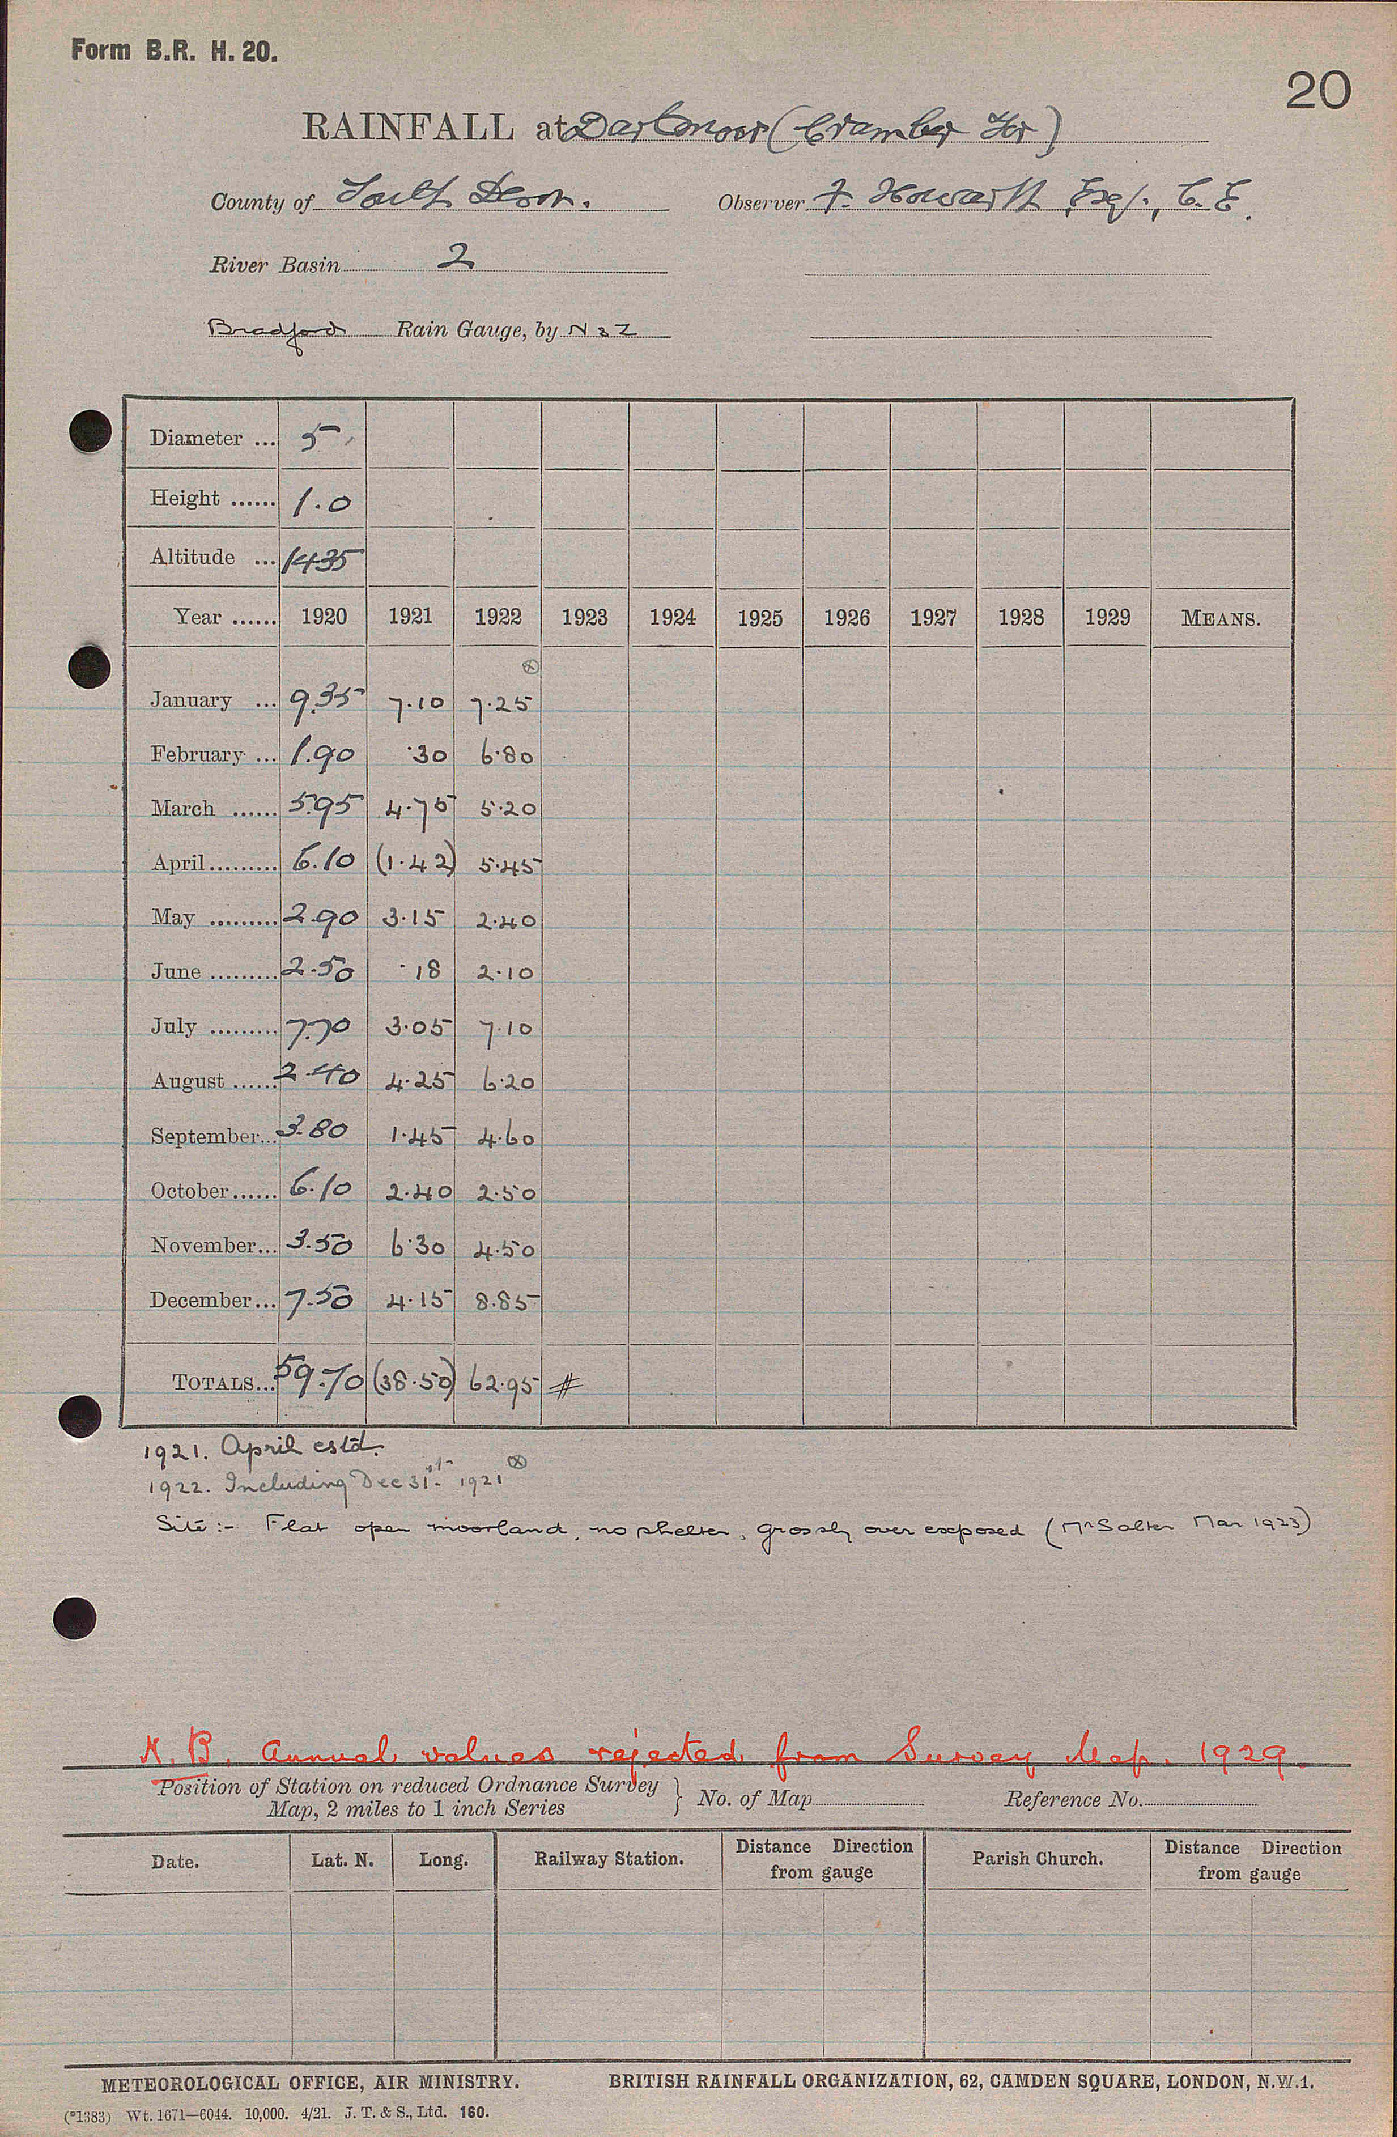 Form B.R. H. 20.
20
RAINFALL at Dartmoor (Cramber Tor)
County of South Devon. Observer F. Howarth Esq., C.E.
River Basin 2
Bradford Rain Gauge, by N & Z
Diameter ... 5
Height ...... 1.0
Altitude ... 1435
Year ...... 1920 1921 1922 1923 1924 1925 1926 1927 1928 1929 MEANS.
ⓧ
January ... 9.35 7.10 7.25
February ... 1.90 .30 6.80
March ...... 5.95 4.75 5.20
April......... 6.10 (1.42) 5.45
May ......... 2.90 3.15 2.40
June ......... 2.50 .18 2.10
July ......... 7.70 3.05 7.10
August ...... 2.40 4.25 6.20
September... 3.80 1.45 4.60
October...... 6.10 2.40 2.50
November... 3.50 6.30 4.50
December... 7.50 4.15 8.85
TOTALS... 59.70 (38.50) 62.95 #
1921. April estd.
1922. Including Dec 31st. 1921 ⓧ
Site :- Flat open moorland, no shelter, grossly over exposed (Mr Salter Mar 1923)
N.B. Annual values rejected from Survey Map. 1929.
Position of Station on reduced Ordnance Survey
Map, 2 miles to 1 inch Series } No. of Map Reference No.
Date. Lat. N. Long. Railway Station. Distance Direction from gauge Parish Church. Distance Direction from gauge
METEOROLOGICAL OFFICE, AIR MINISTRY. BRITISH RAINFALL ORGANIZATION, 62, CAMDEN SQUARE, LONDON, N.W.1.
(*1383) Wt. 1671—6044. 10,000. 4/21. J. T. & S., Ltd. 160.